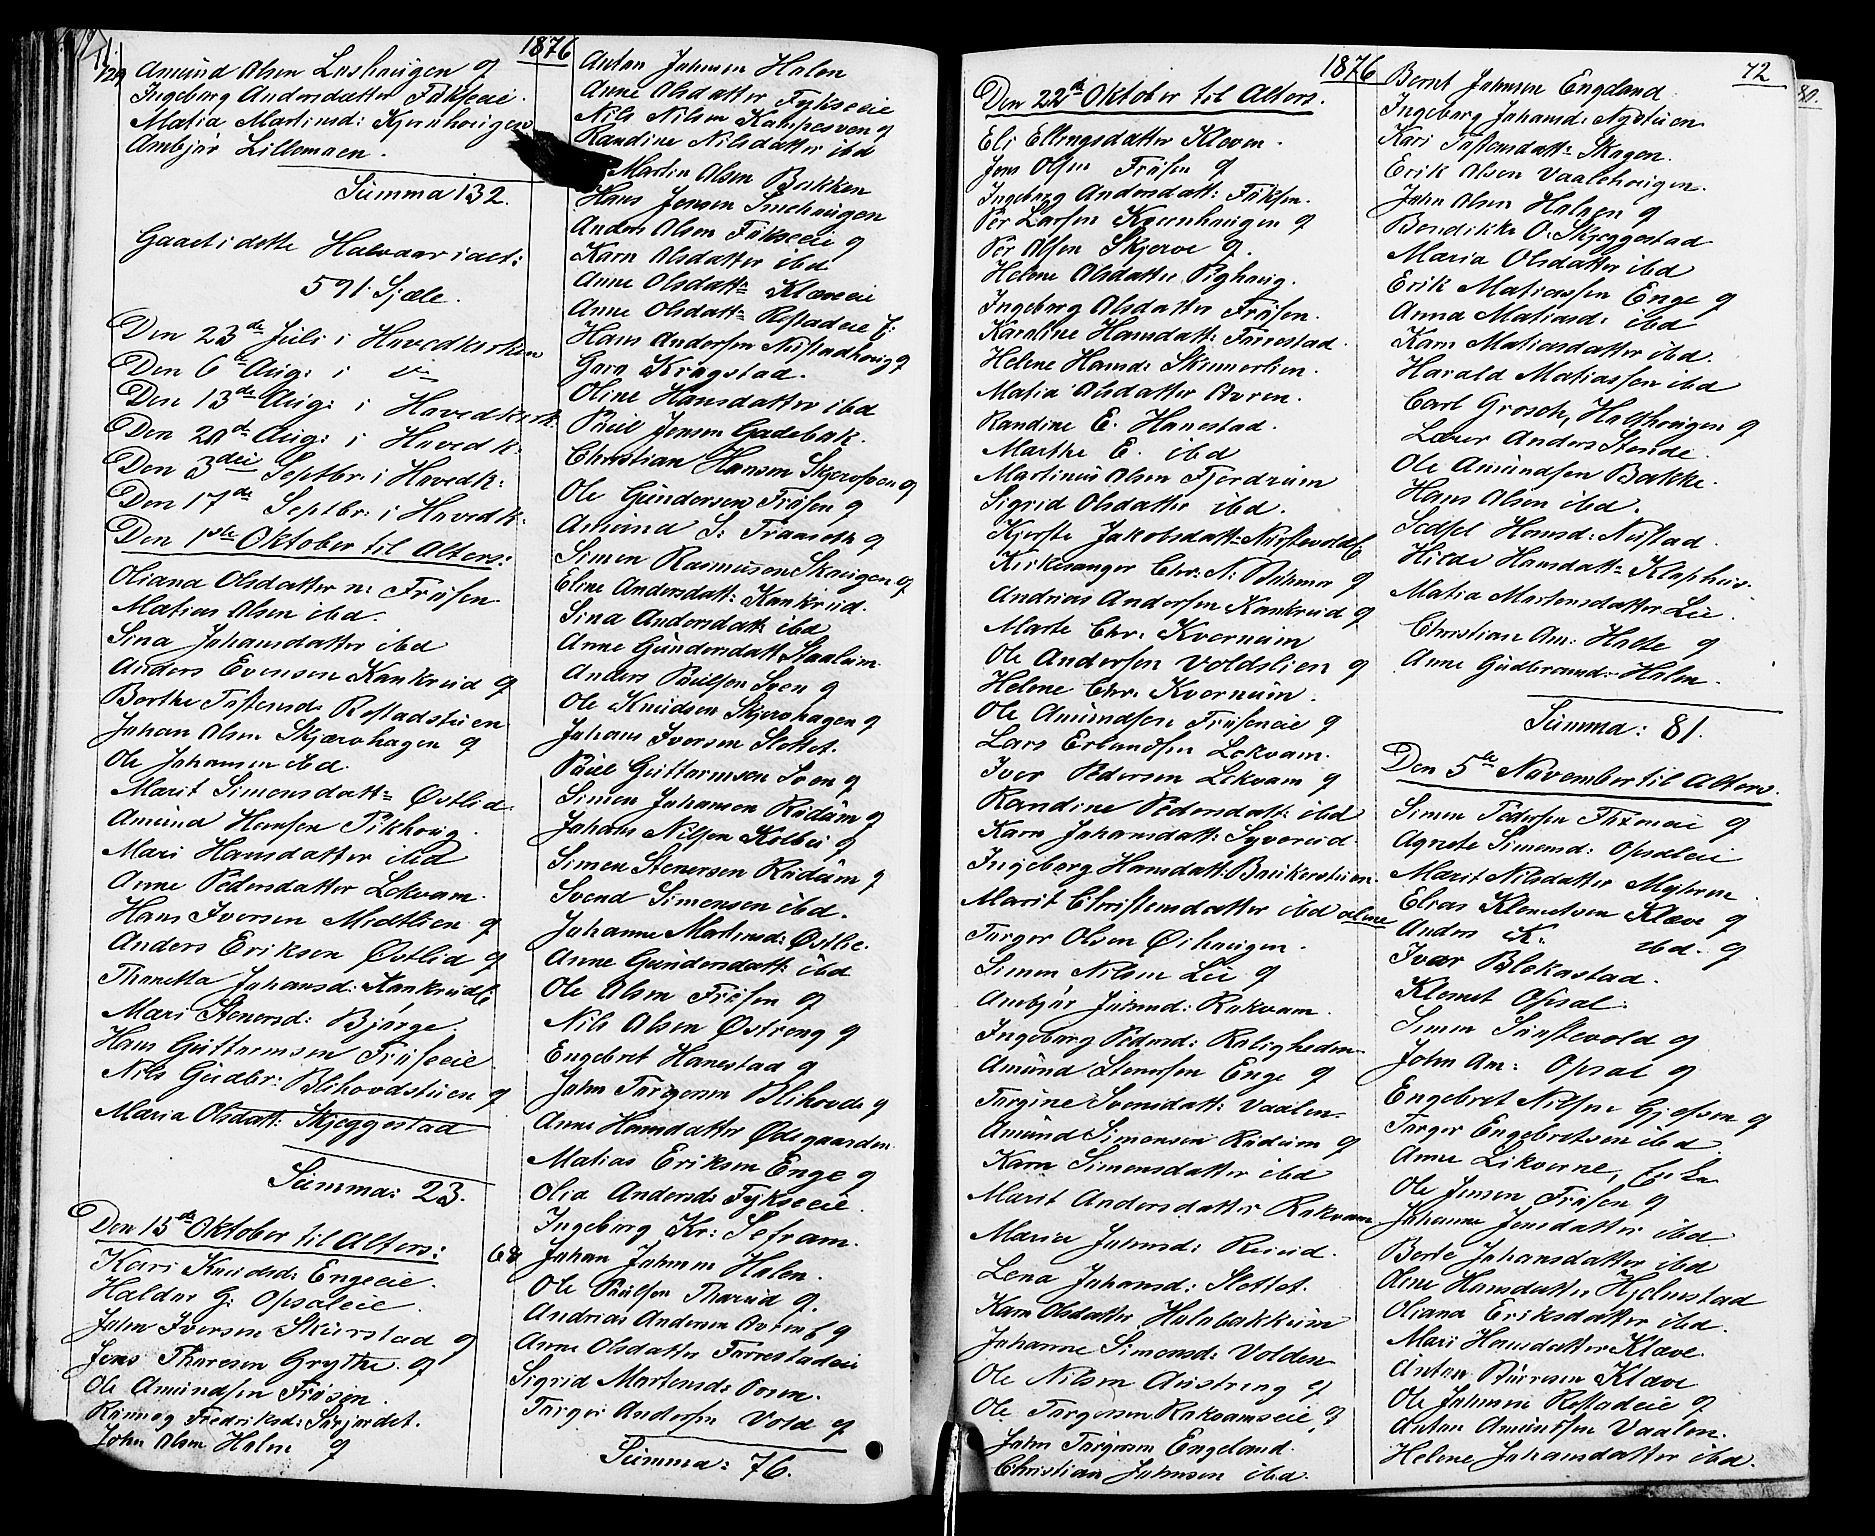 1876
129
Amund Olsen Lushaugen og
Ingeborg Andersdatter Fykseeie.
Matia Martinsd: Kjernhougen
Ambjør Lillemoen.
Summa 132.
Gaaet i dette Halvaar ialt:
591. Sjæle.
Den 23de Juli i Hovedkirken
Den 6te Aug: i
Den 13de Aug: i Hovedkirk.
Den 20de Aug: i Hovedk.
Den 3die Septbr: i Hovedk:
Den 17de Septbr: i Hovedk:
Den 1ste Oktober til Alters:
Oliana Olsdatter n: Frøsen
Matias Olsen ibd.
Sina Johansdatter ibd
Anders Evensen Kankrud og
Berthe Tostensd: Rostadstuen
Johan Olsen Skjærohagen og
Ole Johansen ibd.
Marit Simensdatt= Østlid.
Amund Hansen Pikhoug.
Mari Hansdatter ibd
Anne Pedersdatter Lokvam.
Hans Iversen Midtlien og
Anders Eriksen Østlid og
Thonetta Johansd: Kankrud
Mari Stenersd: Bjørge.
Hans Guttormsen Frøseeie
Nils Gudbr: Blihovdstuen og
Maria Olsdatt: Skjeggestad
Summa: 23.
Den 15de Oktober til Alters:
Kari Knudsd: Engeeie.
Haldor G: Opsaleie.
John Iversen Skurstad og
Jens Thoresen Grythe. og
Ole Amundsen Frøsen.
Rønnog Fredriksd:
John Olsen Halen og
Anton Johnsen Halen
Anne Olsdatter Fykseeie
Nils Nilsen Kampesveen og
Randine Nilsdatter ibd
Martin Olsen Bakken
Hans Jensen
Anders Olsen Fykseeie og
Karn Olsdatter ibd
Anne Olsdatt= Klæveeie
Anne Olsdatt= Rostadeie
Hans Andersen Nustadhoug og
Goro Kragstad.
Oline Hansdatter ibd
Poul Jensen Gadebak.
Christian Hansen Skjerosveen og
Ole Gundersen Frøsen og
Amund S: Fraasethe og
Simen Rasmussen Skougen og
Eline Andersdatt: Kankrud.
Sina Andersdatt: ibd
Anne Gundersdatt: Staalum.
Anders Poulsen Sveen og
Ole Knudsen Skjærohagen og
Johans Iversen Slottet.
Poul Guttormsen Sveen og
Simen Johansen Rudum og
Johans Nilsen Kolbu og
Simen Stenersen Rudum og
Svend Simensen ibd.
Johanne Martinsd: Østlie.
Anne Gundersdatt: ibd
Ole Olsen Frøsen og
Nils Olsen Østreng og
Engebret Hanestad og
John Torgersen Blihovde og
Anne Hansdatter Ødegaarden
Matias Eriksen Enge og
Olia Andersd: Fykseeie.
Ingeborg Kr: Setram.
68 Johan Johnsen Halen.
Ole Poulsen Thorud og.
Andreas Andersen Overn og
Anne Olsdatter Forrestadeie
Sigrid Martensd: Overn.
Torger Andersen Vold og
Summa: 76.
1876
42
80.
Den 22de Oktober til Alters.
Eli Ellingsdatter Kleven.
Jens Olsen Frøsen og
Ingeborg Andersdatt: Foksen.
Per Larsen Kveenhougen og
Per Olsen Skjerve og.
Helene Olsdatter Pighoug.
Ingeborg Olsdatter Frøsen.
Karoline Hansdatt: Forrestad
Helene Hansd: Skinnerlien.
Matia Olsdatter Overn.
Randine E. Hanestad.
Marthe E. ibd
Martinus Olsen Fjordrum
Sigrid Olsdatter ibd.
Kjerste Jakobsdatt=
Kirkesanger Chr: N: Bühmer og
Andrias Andersen Kankrud og
Marte Chr: Kvernum
Ole Andersen Voldslien og
Helene Chr: Kvernum.
Ole Amundsen Frøseneie og
Lars Erlandsen Lokvam.
Iver Pedersen Lokvam og
Randine Pedersdatt: ibd
Karn Johansdatt: Syverud
Ingeborg Hansdatt: Baukerstuen
Marit Christensdatter ibd alene
Torger Olsen Øihougen.
Simen Nilsen Lie og
Ambjør Johnsd: Rokvam.
Ingeborg Pedersd: Roligheden
Amund Stenersen Enge og
Torgine Svensdatt: Vaalen.
Amund Simensen Rudum og
Karn Simensdatter ibd
Marit Andersdatter Rokvam
Maria Johnsd: Ruud.
Lena Johansd: Slottet.
Karn Olsdatter Holobakkum
Johanne Simensd: Volden
Ole Nilsen Austreng og
Ole Torgersen Rokvamseie, og
John Torgersen Engeland.
Christian Johnsen ibd.
Bernt Johnsen Engeland
Ingeborg Johansd: Nystuen
Kari Tostensdatt= Skogen.
Erik Olsen Vaalehougen.
John Olsen Halsen og
Bendikke O: Skjeggestad
Maria Olsdatter ibd
Erik Matiassen Enge og
Anna Matiasd: ibd
Karn Matiasdatter ibd.
Harald Matiassen ibd
Carl Grosch, Halthougen og
Lærer Anders Stende.
Ole Amundsen Bakke.
Hans Olsen ibd.
Sedsel Hansd: Nustad.
Hilda Hansdatt=
Matia Martensdatter Lie.
Christian Am: Holte og
Anne Gudbrandsd: Halen.
Summa: 81.
Den 5te November til Alters.
Simen Pedersen og
Agnete Simensd: Opsaleie
Marit Nilsdatter Myhren
Elias Klemetsen Klæve og
Anders K: ibd. og
Ivar Blekastad.
Klemet Opsal.
Simen og
John Am: Opsal og
Engebret Nilsen Gjefsen og
Torger Engebretsen ibd
Anne Likverne,
Ole Jensen Frøsen og
Johanne Jensdatter ibd
Berte Johansdatter ibd
Olene Hansdatter Hjelmstad
Oliana Eriksdatter ibd.
Mari Hansdatter Klæve.
Anton Klæve
Ole Johnsen Rostadeie og
Anton Amundsen Vaalen.
Helene Johansdatter ibd.